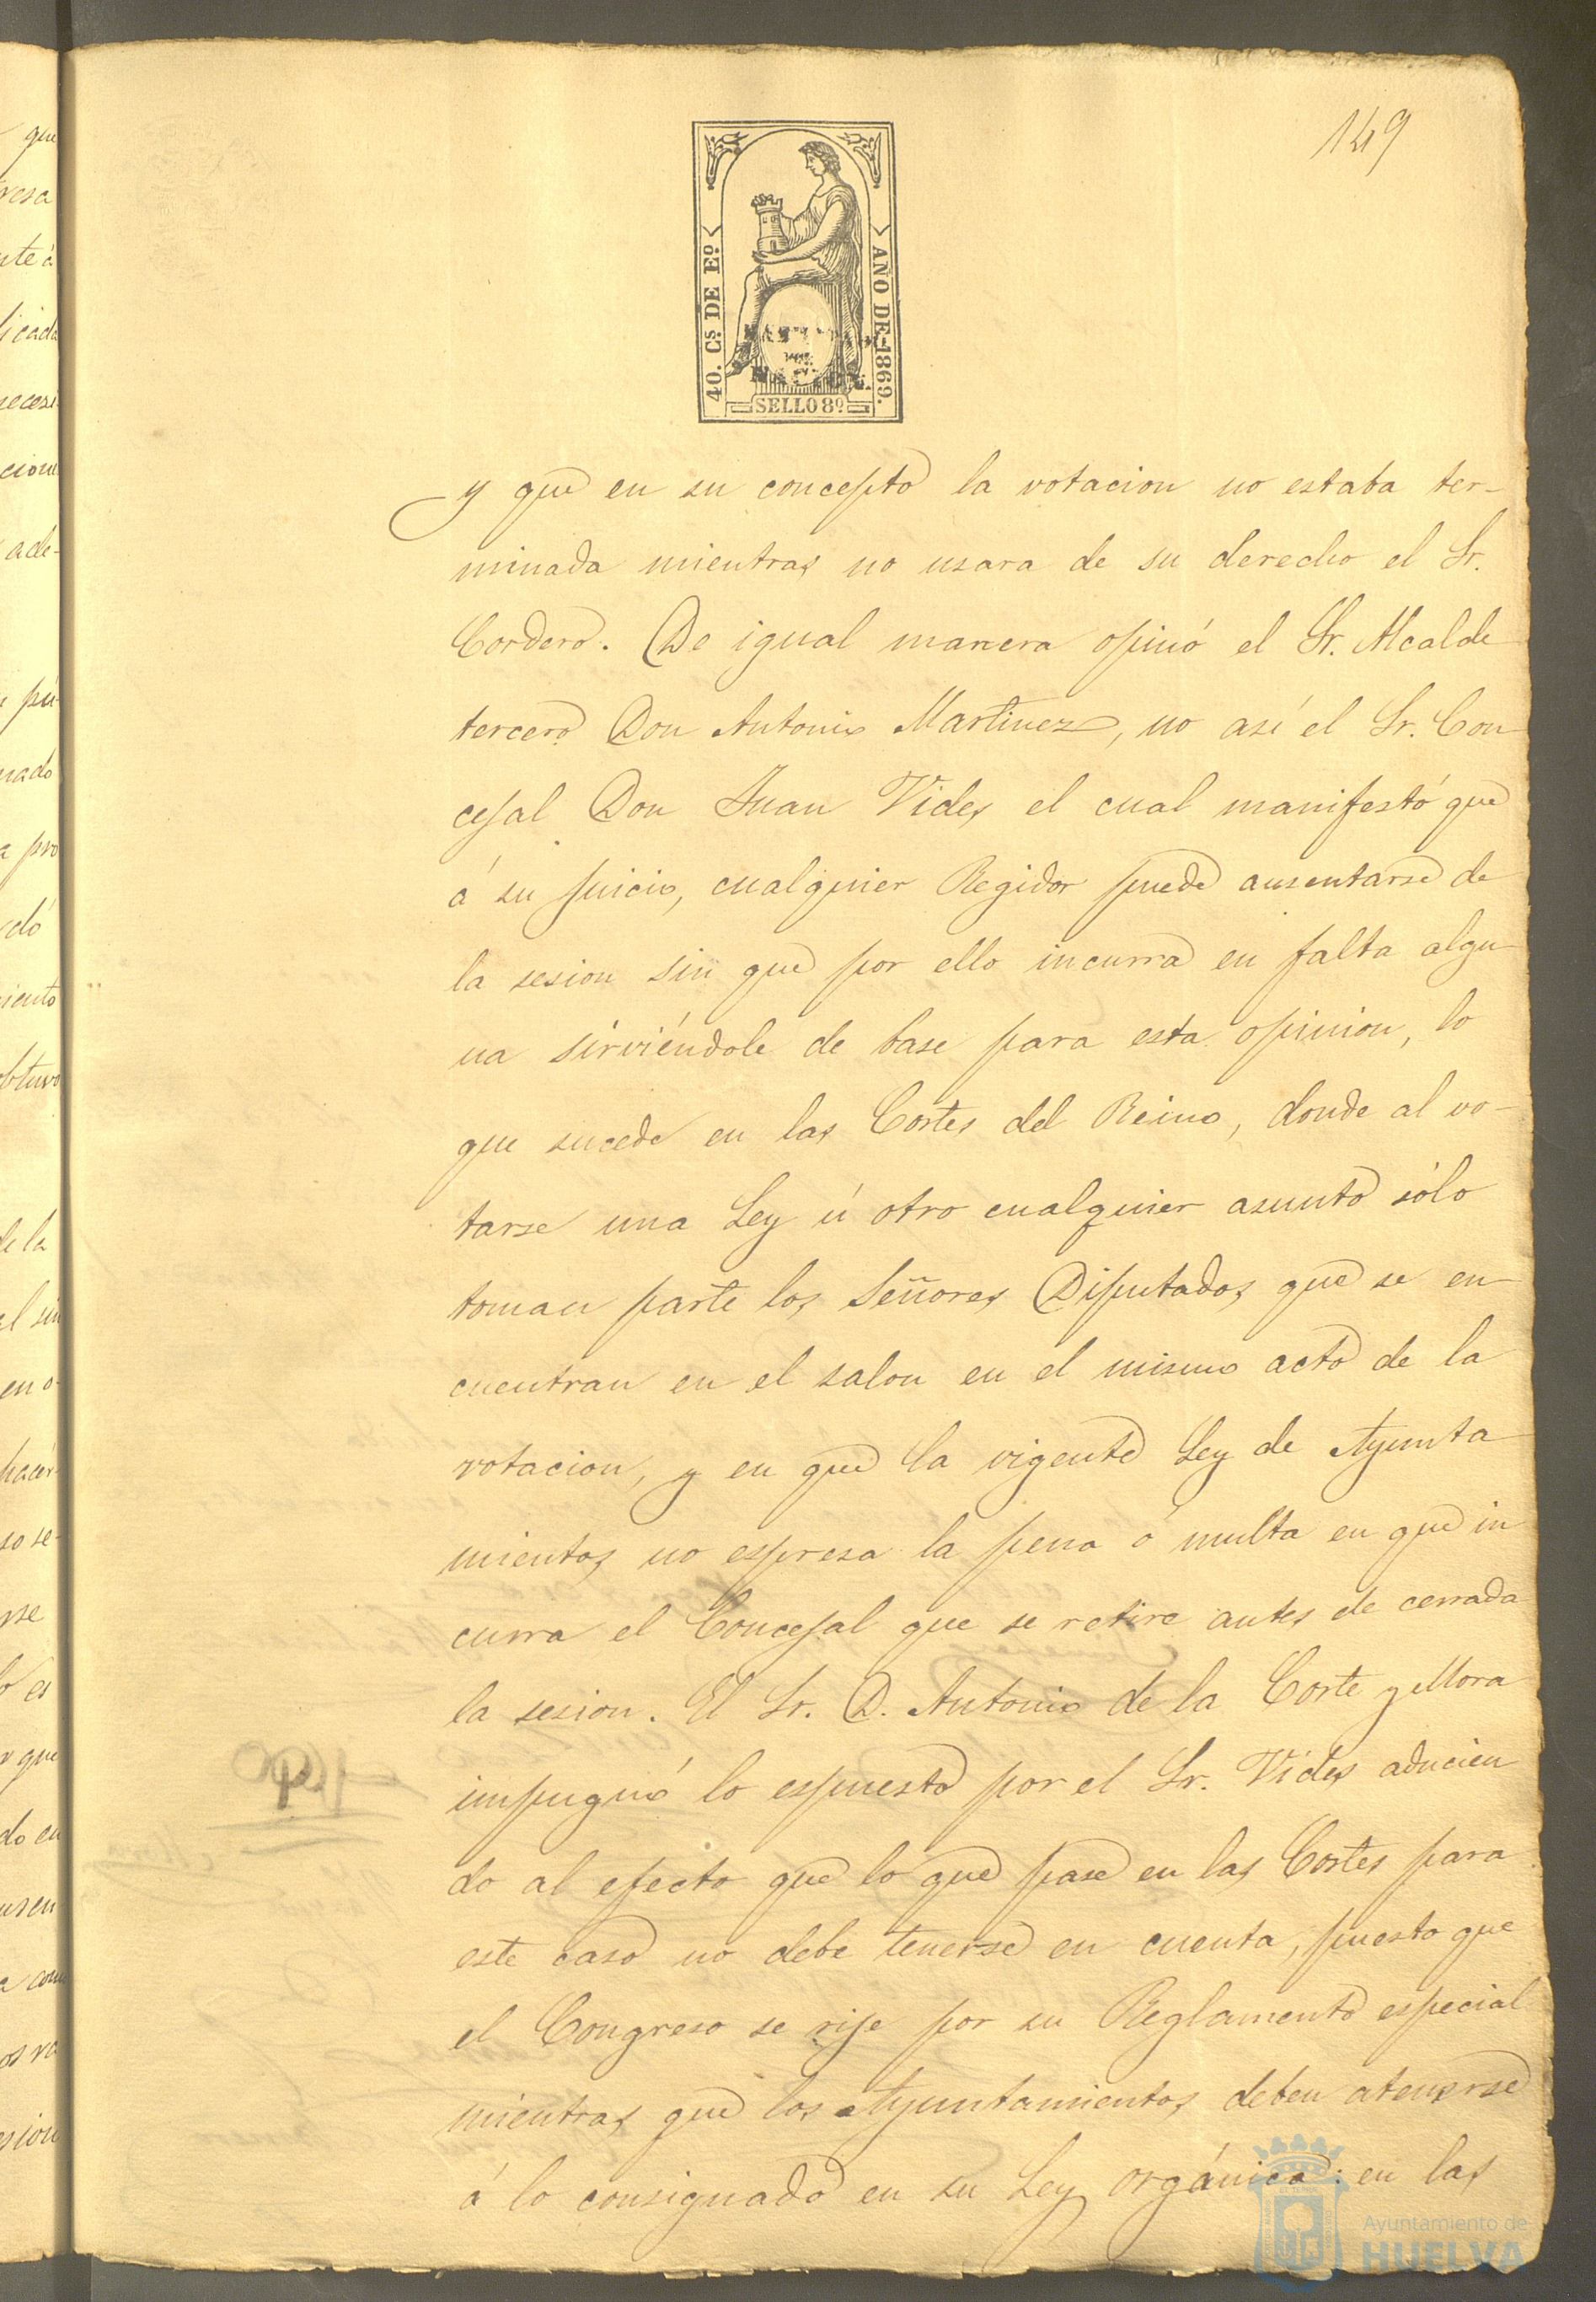 149
40. Cs DE Eº
AÑO DE 1869.
SELLO 8º
y que en su concepto la votacion no estaba ter-
minada mientras no usara de su derecho el Sr.
Cordero. De igual manera opinó el Sr. Alcalde
tercero Don Antonio Martinez, no así el Sr. Con
cejal Don Juan Vides el cual manifestó que
á su juicio, cualquier Regidor puede ausentarse de
la sesion sin que por ello incurra en falta algu-
na sirviéndole de base para esta opinion, lo
que sucede en las Cortes del Reino, donde al vo-
tarse una Ley ú otro cualquier asunto sólo
toman parte los Señores Diputados que se en-
cuentran en el salon en el mismo acto de la
votacion, y en que la vigente Ley de Ayunta
mientos no espresa la pena ó multa en que in
curra el Concejal que se retire antes de cerrada
la sesion. El Sr. D. Antonio de la Corte y Mora
impugnó lo espuesto por el Sr. Vides aducien
do al efecto que lo que pase en las Cortes para
este caso no debe tenerse en cuenta, puesto que
el Congreso se rije por su Reglamento especial
mientras que los Ayuntamientos deben atenerse
á lo consignado en su Ley orgánica: en las
Ayuntamiento de
HUELVA